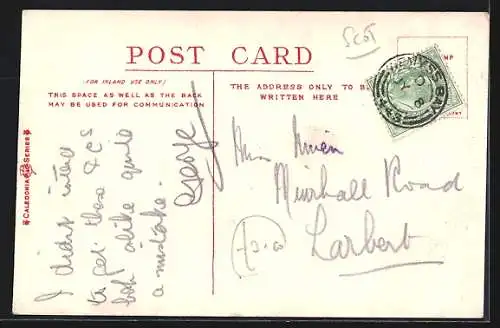 Scot
POST CARD
(FOR INLAND USE ONLY)
THIS SPACE AS WELL AS THE BACK
MAY BE USED FOR COMMUNICATION
THE ADDRESS ONLY TO B
WRITTEN HERE
WEMYSS BAY
CALEDONIA SERIES
I didnt intend
to get these P.Cs
both alike quite
a mistake.
George
Miss
Muirhall Road
Larbert